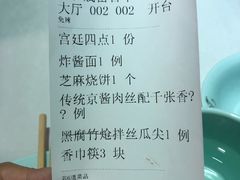 大厅 002 002 开台
免辣
宫廷四点1 份
炸酱面1 例
芝麻烧饼1 个
传统京酱肉丝配千张香?
? 例
黑腐竹炝拌丝瓜尖1 例
香巾筷3 块